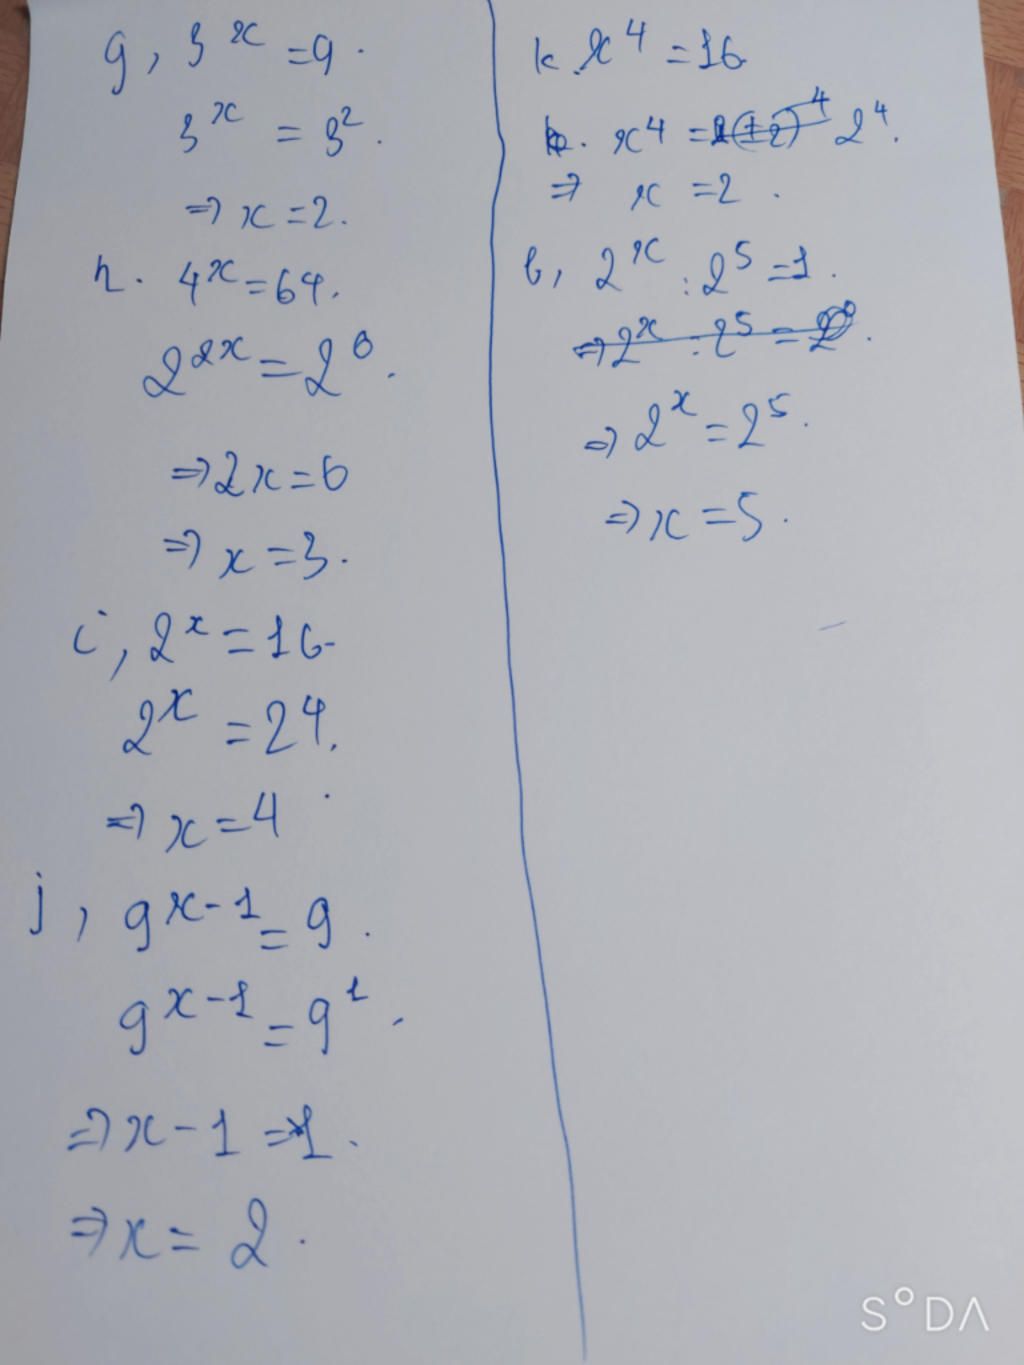 g, 3^x = 9.
3^x = 3^2.
⇒ x = 2.
h. 4^x = 64.
2^2x = 2^6.
⇒ 2x = 6
⇒ x = 3.
i, 2^x = 16
2^x = 2^4.
⇒ x = 4
j, 9^x-1 = 9.
9^x-1 = 9^1.
⇒ x - 1 = 1.
⇒ x = 2.
k. x^4 = 16
x^4 = 2^4.
⇒ x = 2.
l, 2^x : 2^5 = 1.
⇒ 2^x : 2^5 = 2^0.
⇒ 2^x = 2^5.
⇒ x = 5.
S°DA